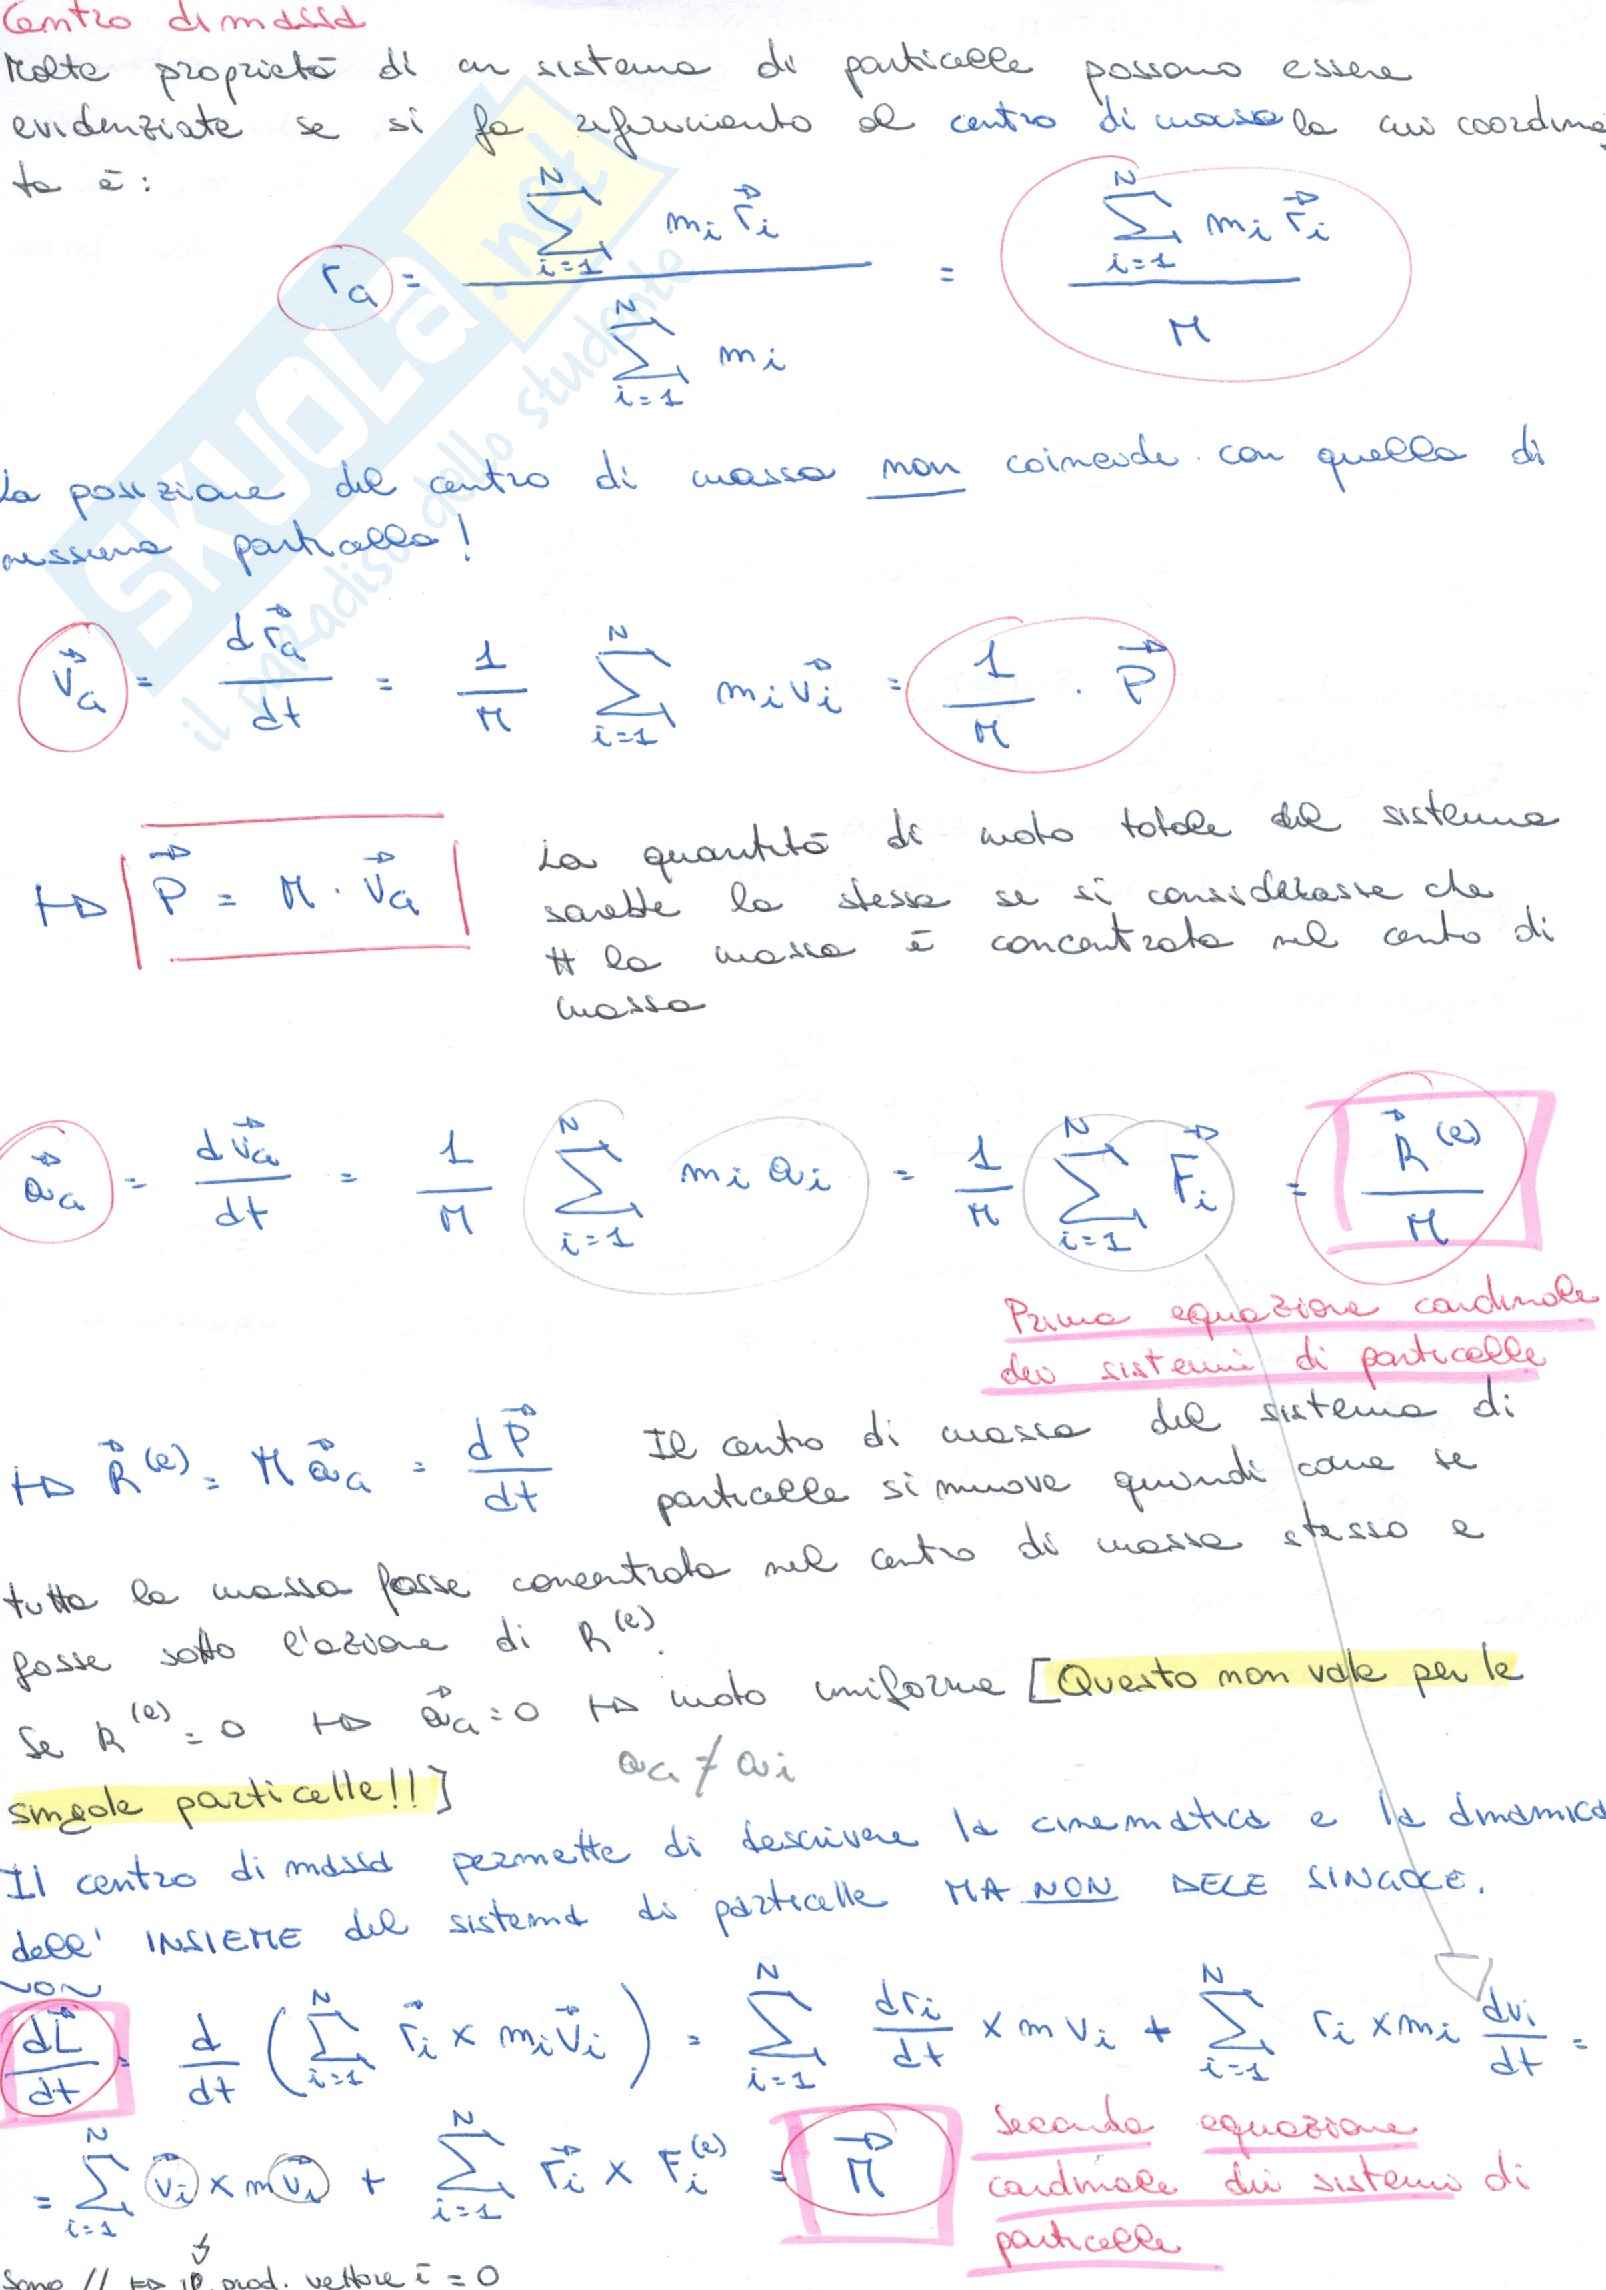 Centro di massa
Molte proprietà di un sistema di particelle possono essere
evidenziate se si fa riferimento al centro di massa la cui coordina
ta è:
r_G = \frac{\sum_{i=1}^{N} m_i \vec{r}_i}{\sum_{i=1}^{N} m_i} = \frac{\sum_{i=1}^{N} m_i \vec{r}_i}{M}
La posizione del centro di massa non coincide con quella di
nessuna particella!
\vec{v}_G = \frac{d\vec{r}_G}{dt} = \frac{1}{M} \sum_{i=1}^{N} m_i \vec{v}_i = \frac{1}{M} \cdot \vec{P}
↦ \vec{P} = M \cdot \vec{v}_G
La quantità di moto totale del sistema
sarebbe la stessa se si considerasse che
tt la massa è concentrata nel cento di
massa
\vec{a}_G = \frac{d\vec{v}_G}{dt} = \frac{1}{M} \sum_{i=1}^{N} m_i a_i = \frac{1}{M} \sum_{i=1}^{N} \vec{F}_i = \frac{\vec{R}^{(e)}}{M}
Prima equazione cardinale
dei sistemi di particelle
↦ \vec{R}^{(e)} = M \vec{a}_G = \frac{d\vec{P}}{dt} Il centro di massa del sistema di
particelle si muove quindi come se
tutta la massa fosse concentrata nel centro di massa stesso e
fosse sotto l'azione di R^{(e)}.
Se R^{(e)} = 0 ↦ \vec{a}_G = 0 ↦ moto uniforme [Questo non vale per le
singole particelle!!]
a_G ≠ a_i
Il centro di massa permette di descrivere la cinematica e la dinamica
dell' INSIEME del sistema di particelle MA NON DELLE SINGOLE.
\frac{d\vec{L}}{dt} = \frac{d}{dt} \left( \sum_{i=1}^{N} \vec{r}_i × m_i \vec{v}_i \right) = \sum_{i=1}^{N} \frac{dr_i}{dt} × m v_i + \sum_{i=1}^{N} r_i × m_i \frac{dv_i}{dt} =
= \sum_{i=1}^{N} \vec{v}_i × m \vec{v}_i + \sum_{i=1}^{N} \vec{r}_i × F_i^{(e)} = \vec{M}
Seconda equazione
cardinale dei sistemi di
particelle
Sono // ↦ il prod. vettore è = 0
SKUOLa.net
il paradiso dello studente